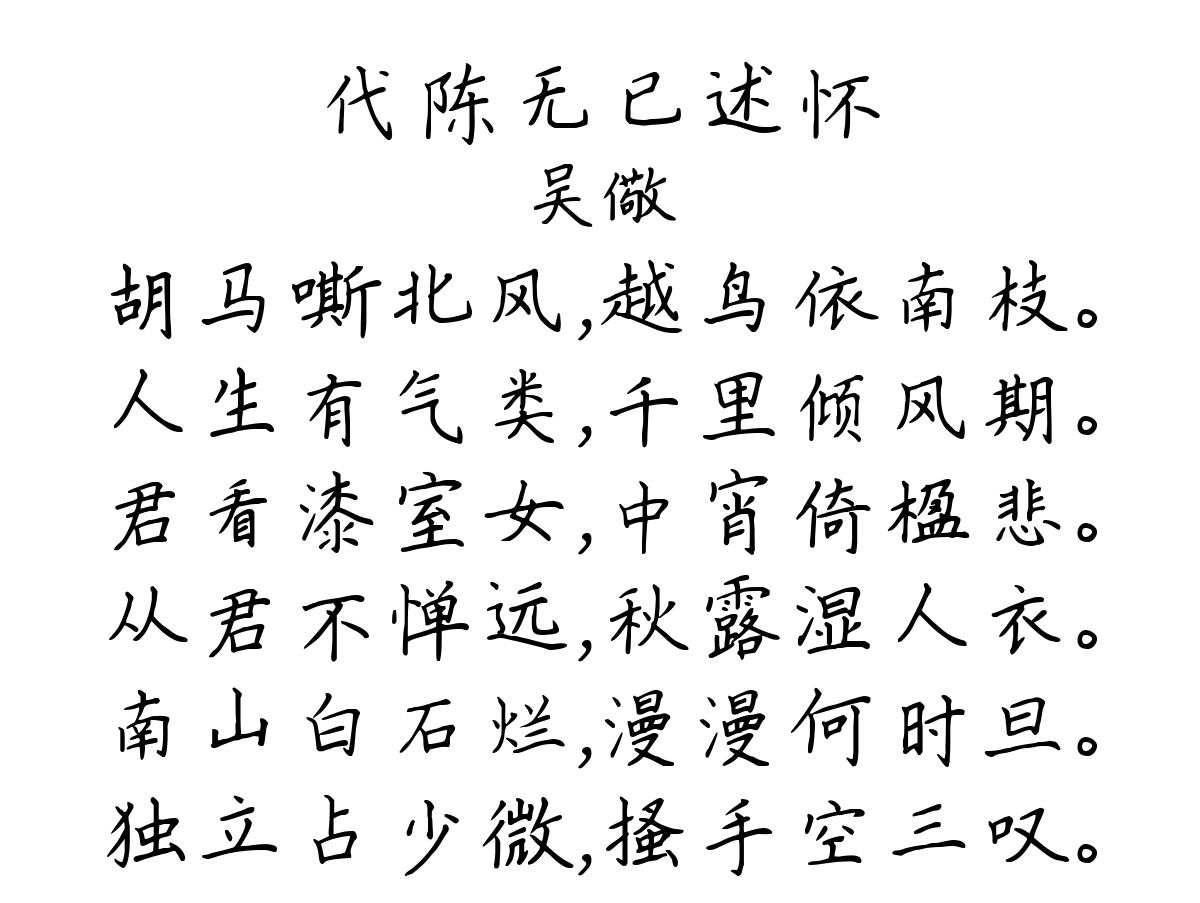 代陈无已述怀
吴儆
胡马嘶北风,越鸟依南枝。
人生有气类,千里倾风期。
君看漆室女,中宵倚楹悲。
从君不惮远,秋露湿人衣。
南山白石烂,漫漫何时旦。
独立占少微,搔手空三叹。